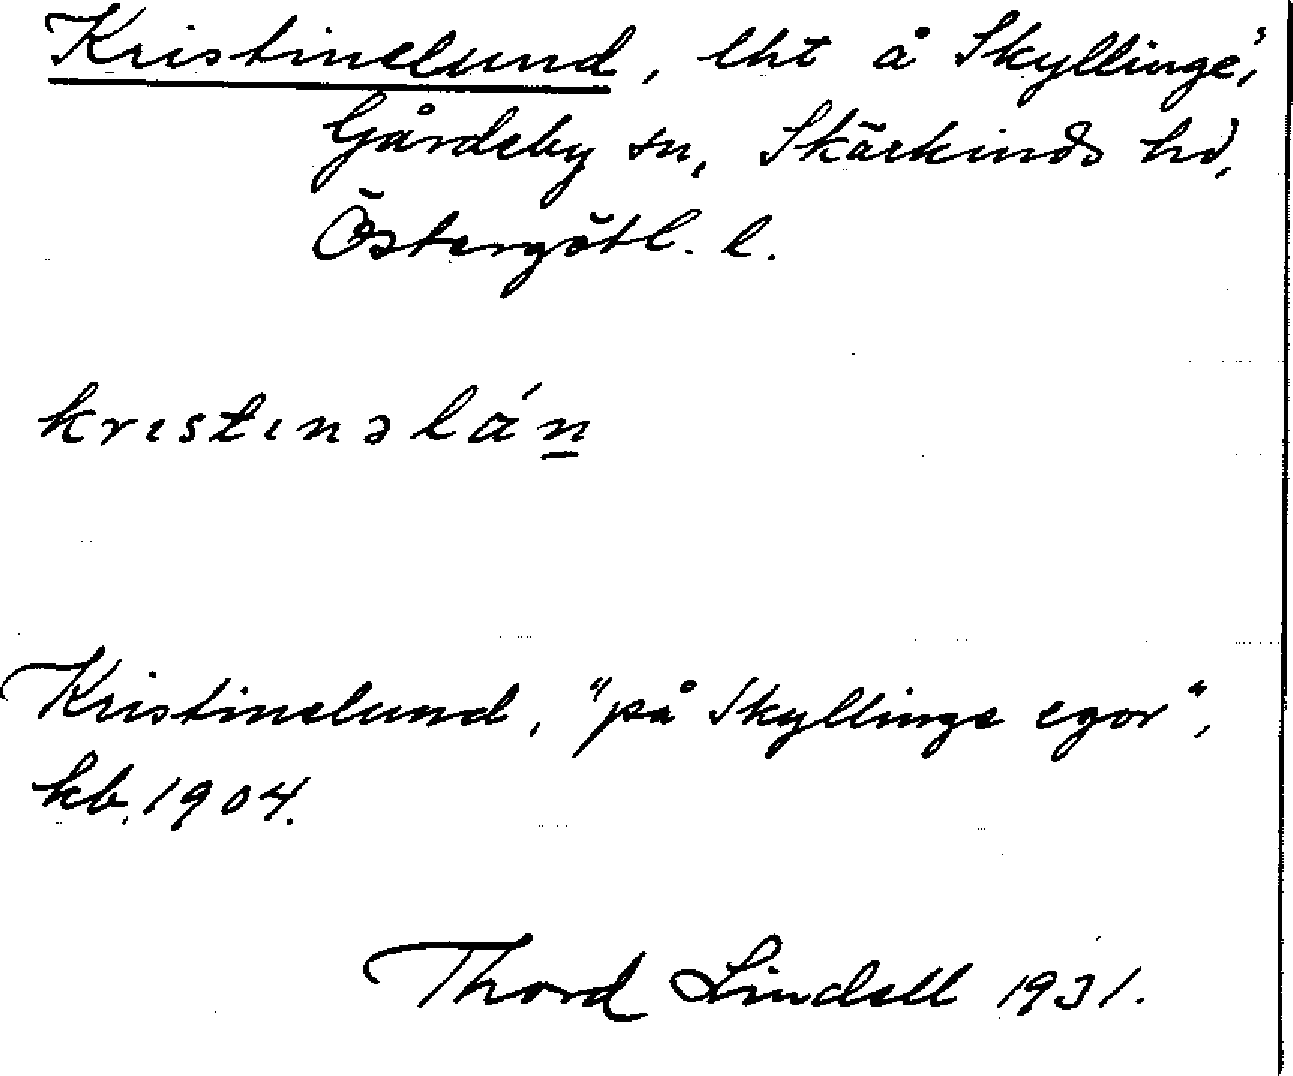 Kristinelund, lht å Skyllinge,
Gårdeby sn, Skärkinds hd,
Östergötl. l.
krıstınəlán
Kristinelund, "på Skyllinge egor",
kb. 1904.
Thord Lindell 1931.